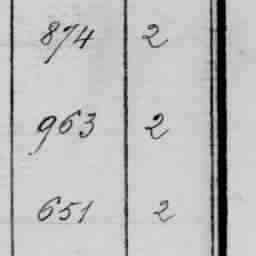 874 2
963 2
651 2